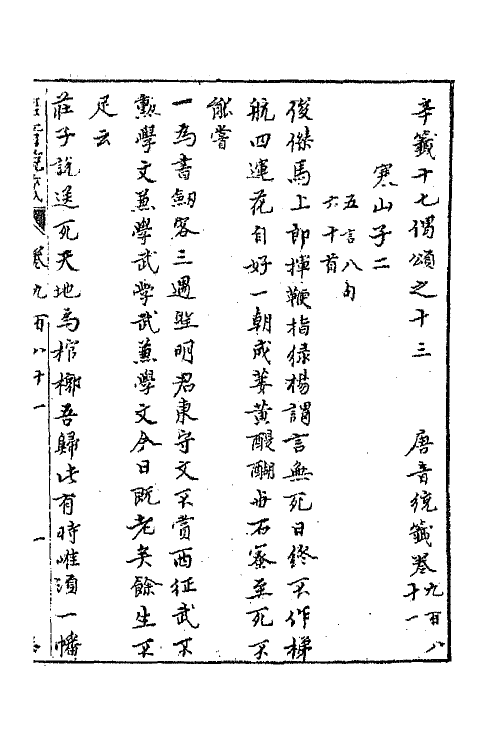 辛籤十七偈頌之十三　唐音統籤卷九百八十一
寒山子二
五言八句
六十首
俊傑馬上郎揮鞭指綠楊謂言無死日終不作梯
航四運花自好一朝成萎黃醍醐與石蜜至死不
能嘗
一為書劒客三遇聖明君東守文不賞西征武不
勲學文兼學武學武兼學文今日既老矣餘生不
足云
莊子說送死天地為棺槨吾歸此有時唯須一幡
唐音統籤　卷九百八十一　一